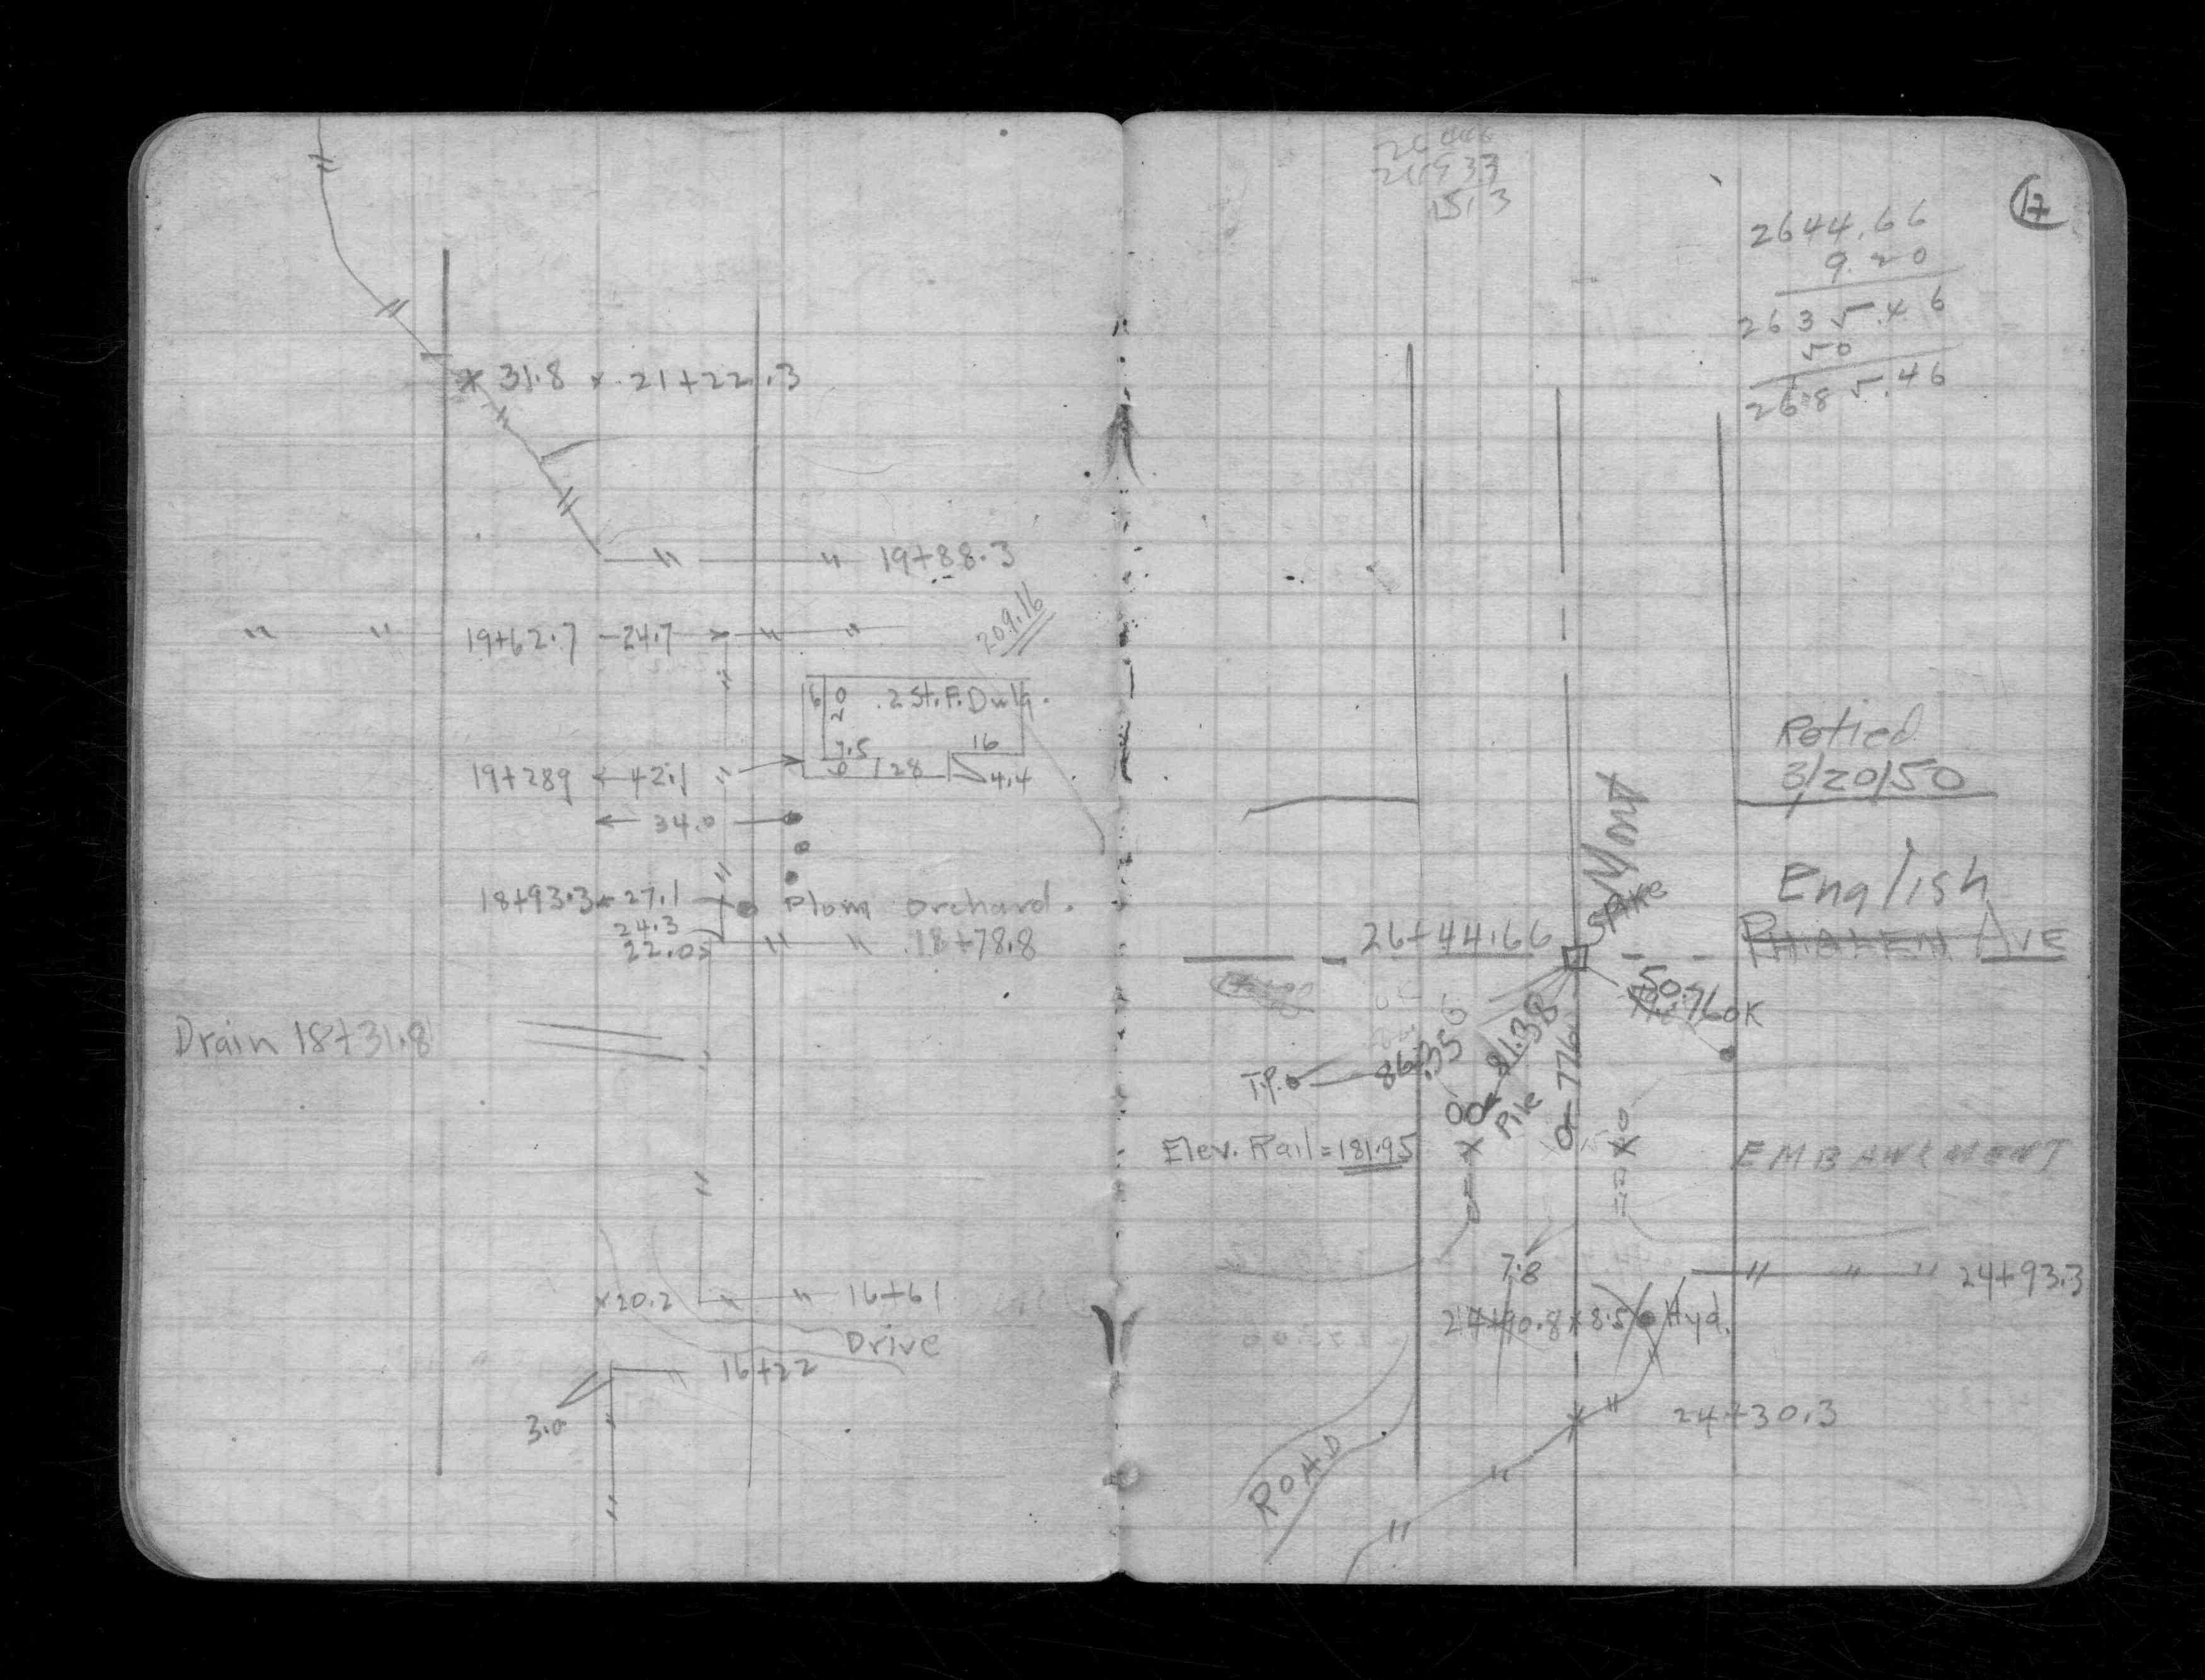 31.8 x 21+22.3
19+88.3
19+62.7 -24.7
209.16
2 St. F. Dwlg.
16
7.5
16
19+289 42.1
28
4.4
34.0
18+93.3 27.1
Plum Orchard.
24.3
22.05
18+78.8
Drain 18+31.8
x20.2
16+61
Drive
16+22
3.0
17
15.3
2644.66
9.20
2635.46
50
2685.46
Retied
3/20/50
Mont
English
Spike
26+44.66
PHALEN AVE
50.76 OK
86.35
81.38
77.6
T.P.
Pile
Elev. Rail = 181.95
EMBANKMENT
7.8
24+93.3
24+90.8 x 8.5 Hyd.
24+30.3
ROAD